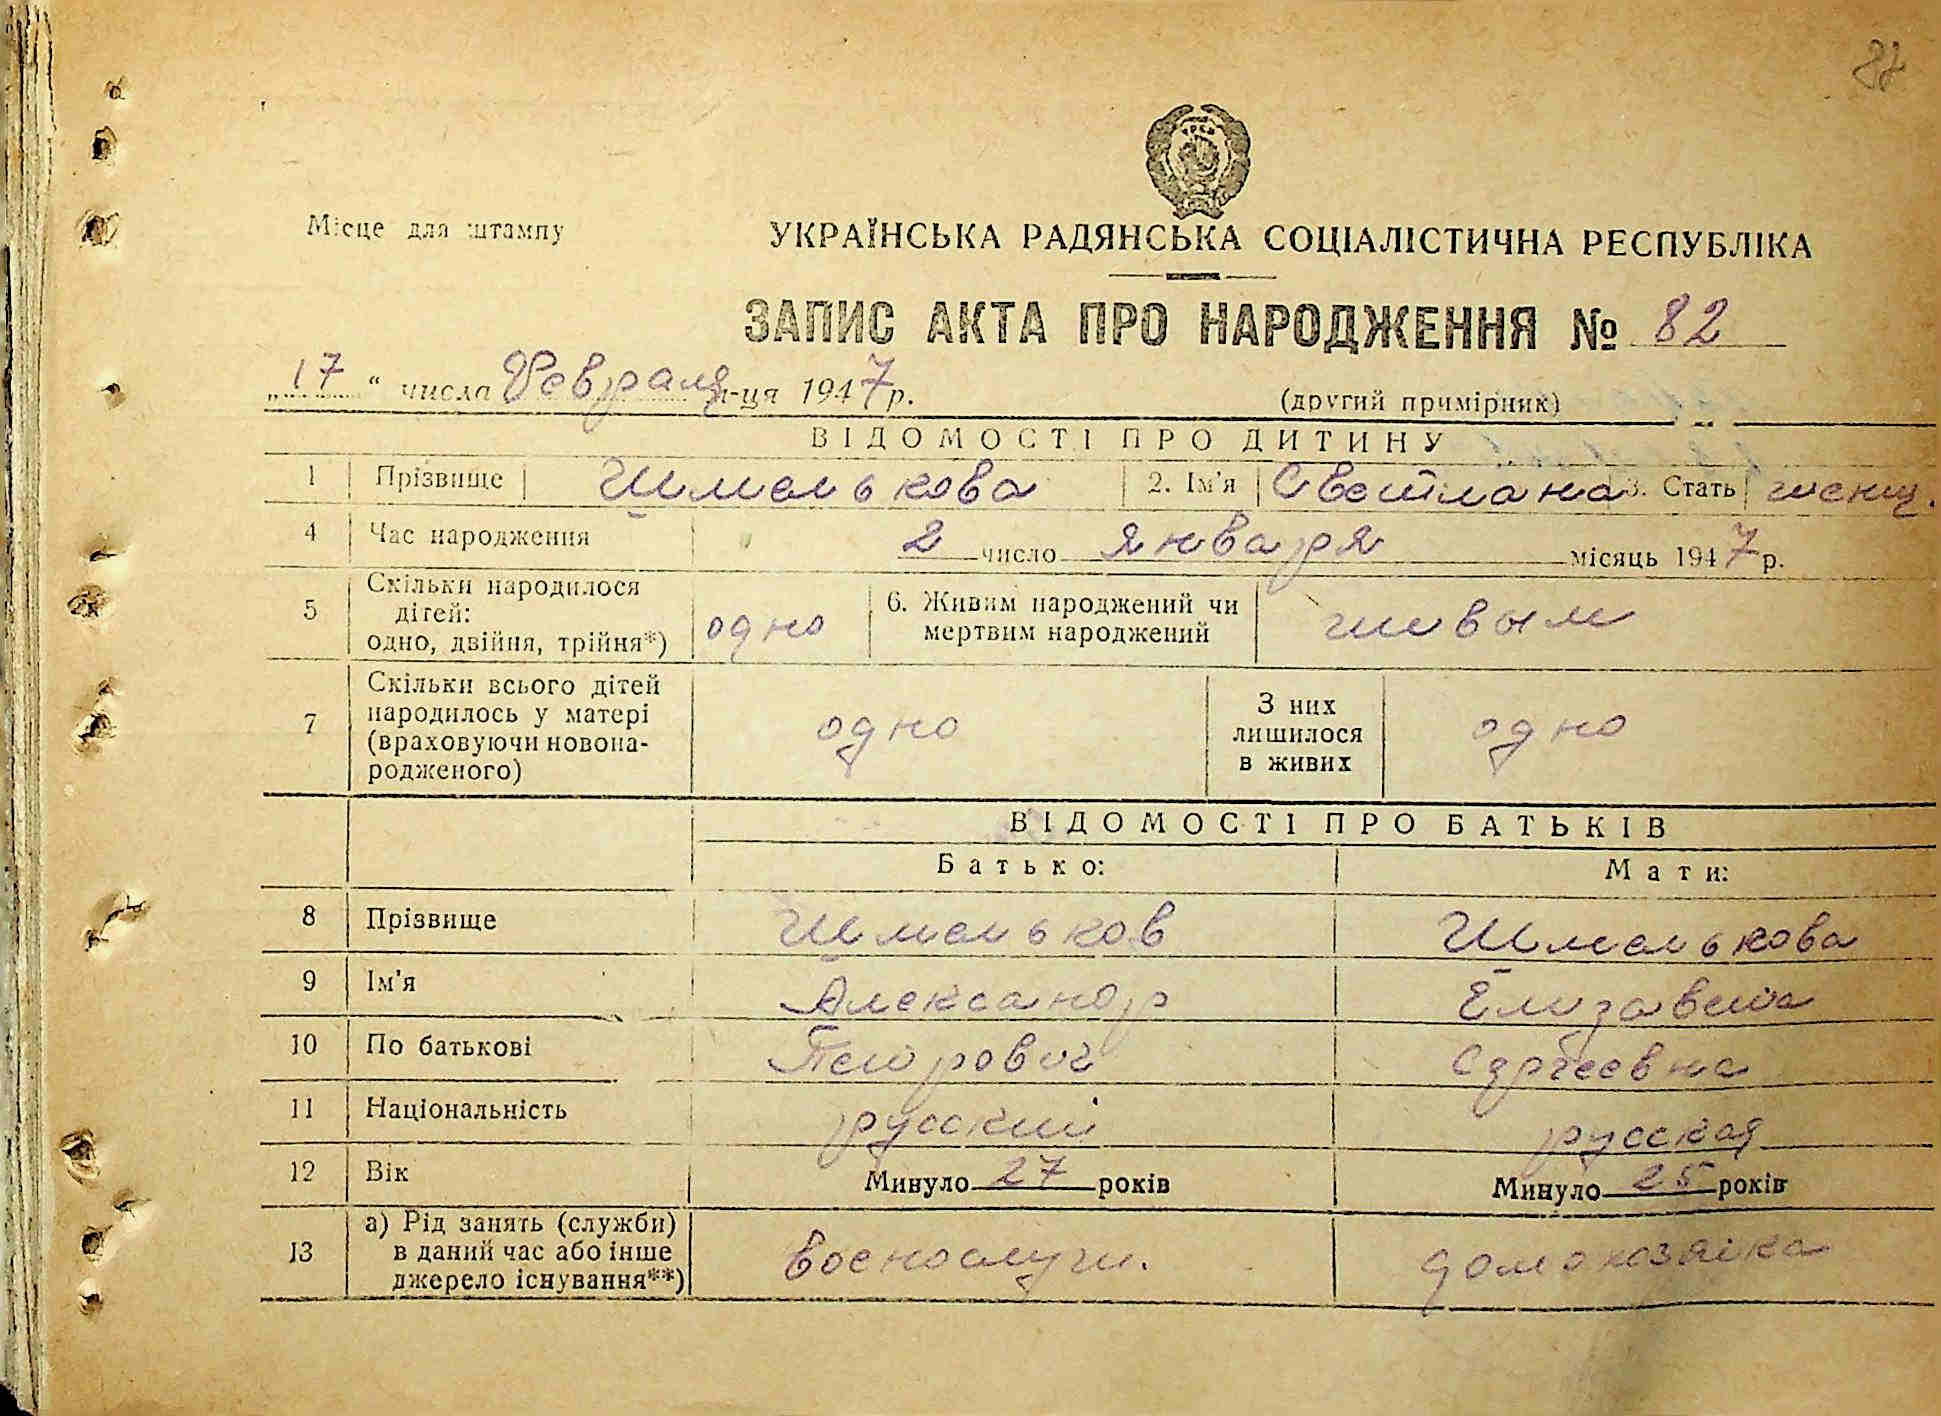 87
Місце для штампу
УКРАЇНСЬКА РАДЯНСЬКА СОЦІАЛІСТИЧНА РЕСПУБЛІКА
ЗАПИС АКТА ПРО НАРОДЖЕННЯ № 82
„17“ числа Февраля м-ця 1947 р.
(другий примірник)
ВІДОМОСТІ ПРО ДИТИНУ
1 Прізвище Шмелькова 2. Ім'я Светлана 3. Стать женщ.
4 Час народження 2 число января місяць 1947 р.
5 Скільки народилося дітей: одно, двійня, трійня*) одно 6. Живим народжений чи мертвим народжений живым
7 Скільки всього дітей народилось у матері (враховуючи новона-родженого) одно З них лишилося в живих одно
ВІДОМОСТІ ПРО БАТЬКІВ
Батько: Мати:
8 Прізвище Шмельков Шмелькова
9 Ім'я Александр Елизавета
10 По батькові Петрович Сергеевна
11 Національність русский русская
12 Вік Минуло 27 років Минуло 25 років
13 а) Рід занять (служби) в даний час або інше джерело існування**) военослуж. домохозяйка